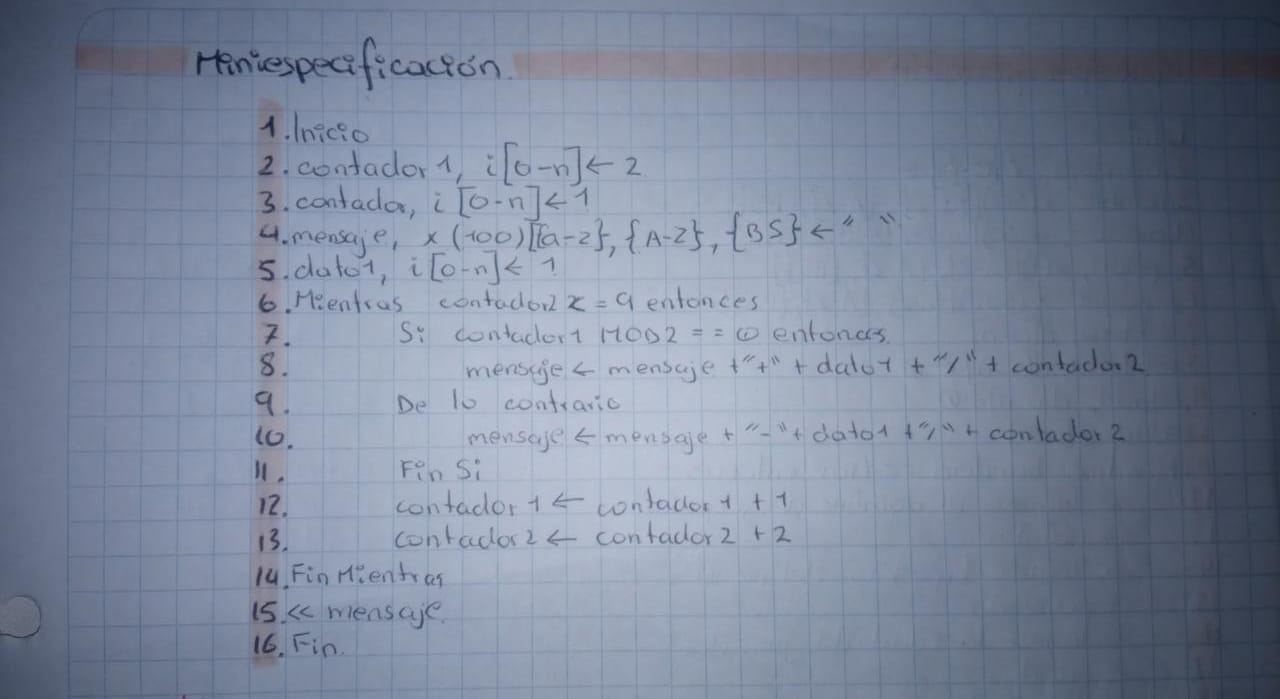 Miniespecificación
1. Inicio
2. contador 1, i [0-n] ← 2
3. contador, i [0-n] ← 1
4. mensaje, x (100) [{a-z}, {A-Z}, {BS} ← " "
5. dato1, i [0-n] ← 1
6. Mientras contador2 <= 9 entonces
7. Si contador1 MOD2 == 0 entonces
8. mensaje ← mensaje + "+" + dato1 + "/" + contador2
9. De lo contrario
10. mensaje ← mensaje + "-" + dato1 + "/" + contador2
11. Fin Si
12. contador1 ← contador1 + 1
13. contador2 ← contador2 + 2
14. Fin Mientras
15. << mensaje
16. Fin.